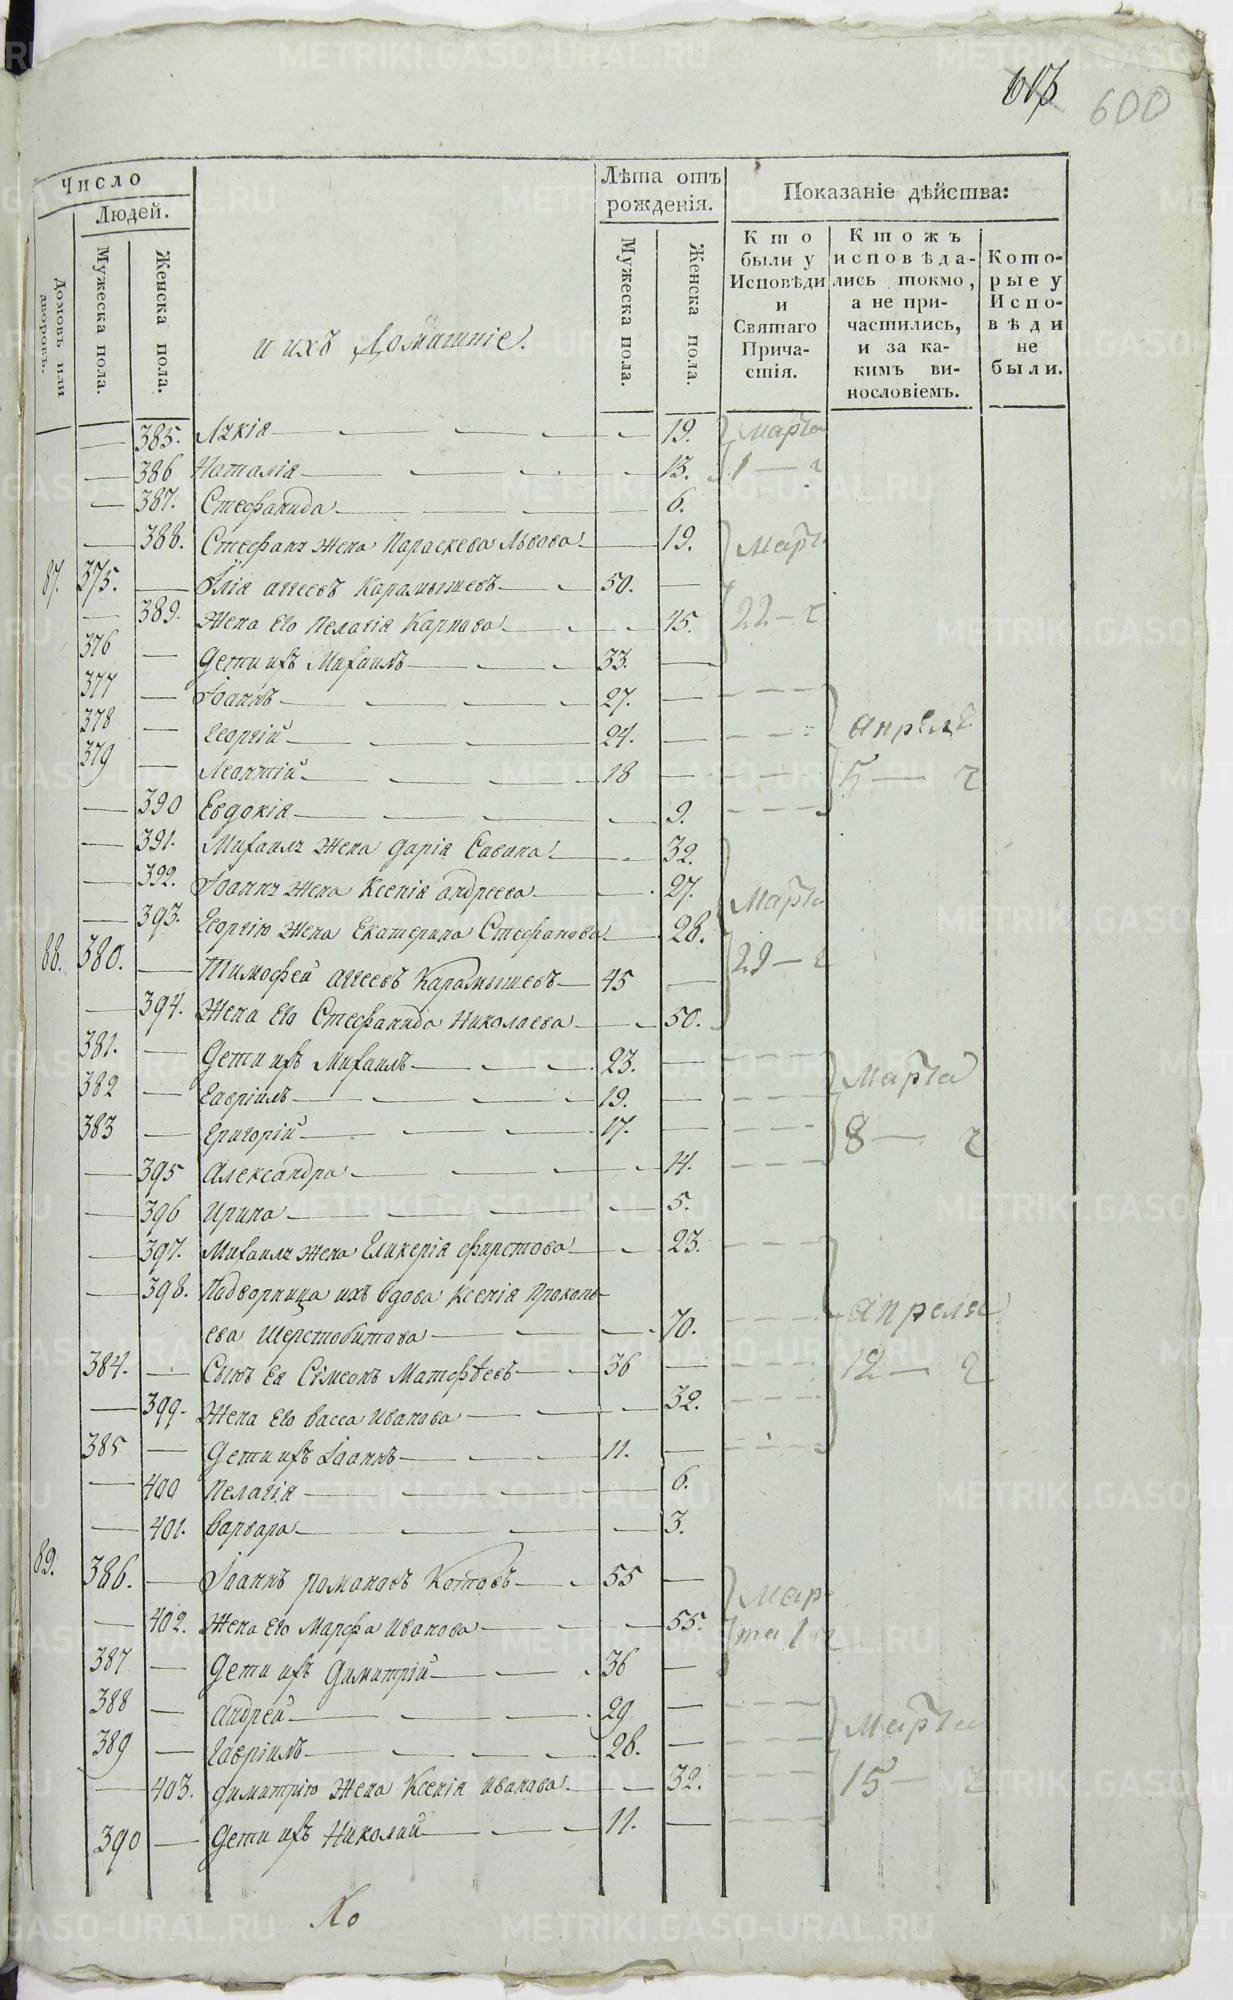 600
Число
Людей.
Домовъ или дворовъ.
Мужеска пола.
Женска пола.
и ихъ Домашніе.
Лѣта отъ рожденія.
Мужеска пола.
Женска пола.
Показаніе дѣйства:
Кто были у Исповѣди и Святаго Прича-стія.
Кто жъ исповѣда-лись токмо, а не при-частились, и за ка-кимъ ви-нословіемъ.
Кото-рые у Испо-вѣди не были.
385. Лукія 19. марта
386 Наталія 13. 1 — ч
387. Стефанида 6.
388. Стефана жена Параскева Львова 19. Март
87. 375. Илія Аггеевъ Карамышевъ 50.
389. Жена его Пелагія Карпова 45. 22 — ч
376 Дети ихъ Михаилъ 33.
377 Іоаннъ 27.
378 Георгій 24. апреля
379 Леонтій 18 5 — ч
390 Евдокія 9.
391. Михаила жена Дарія Савина 32.
392. Іоанна жена Ксенія Андреева 27. Марта
393. Георгію жена Екатерина Стефанова 28.
88. 380. Тимофей Аггеевъ Карамышевъ 45 29 — ч
394. Жена его Стефанида Николаева 50.
381. Дети ихъ Михаилъ 23. Марта
382 Гавріилъ 19.
383 Григорій 17. 8 — ч
395 Александра 14.
396 Ирина 5.
397. Михаила жена Гликерія Фирстова 23.
398. Падворница ихъ вдова Ксенія Прокопь- апреля
ева Шерстобитова 70.
384. Сынъ ея Сѵмеонъ Матфѣевъ 36 12 — ч
399. Жена его Васса Иванова 32.
385 Дети ихъ Іоаннъ 11.
400 Пелагія 6.
401. Варвара 3.
89. 386. Іоаннъ Романовъ Котовъ 55 Мар-
402. Жена его Марфа Иванова 55. та 1 ч
387 Дети ихъ Димитрій 36
388 Андрей 29 Марта
389 Гавріилъ 28.
403. Димитрію жена Ксенія Иванова 32. 15 — ч
390 Дети ихъ Николай 11.
Ко
METRIKI.GASO-URAL.RU